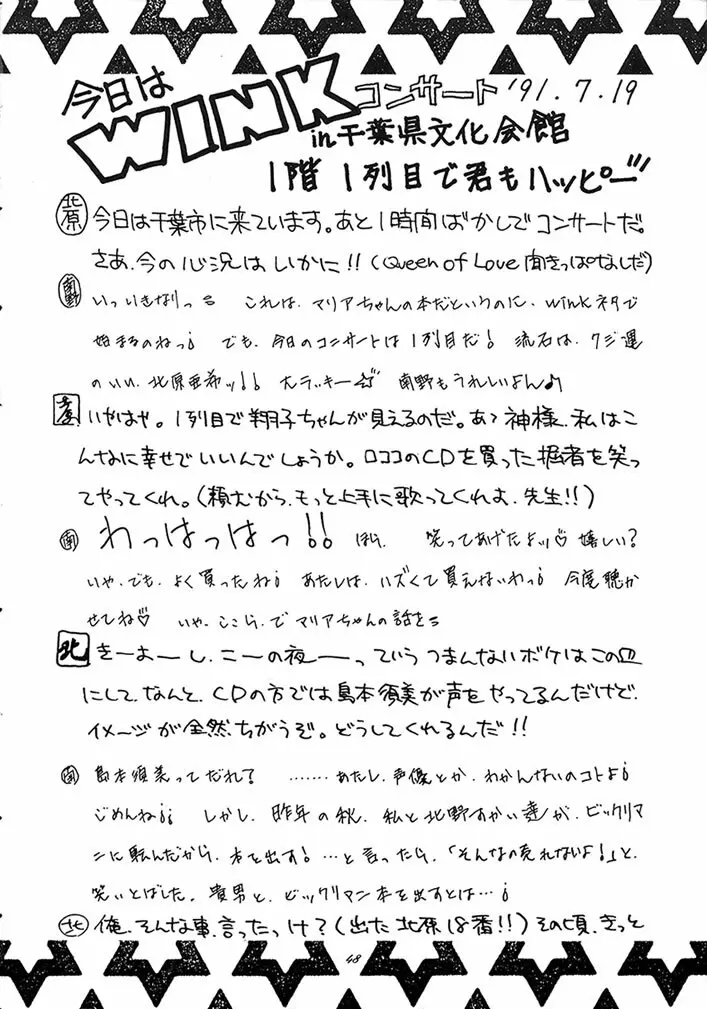 今日は WINK コンサート '91.7.19
in 千葉県文化会館
1階1列目で君もハッピー
北原 今日は千葉市に来ています。あと1時間ばかしでコンサートだ。
さあ、今の心況はいかに!!(Queen of Love 聞きっぱなしだ)
南野 いっいきなりっ これは、マリアちゃんの本だというのに、Winkネタで
始まるのねっ¡ でも、今日のコンサートは1列目だ! 流石は、クジ運
のいい、北原亜希ッ!! 大ラッキー☆ 南野もうれしいよん♪
いやはや。1列目で翔子ちゃんが見えるのだ。あゝ神様、私はこ
んなに幸せでいいんでしょうか。ロココのCDを買った掘者を笑っ
てやってくれ。(頼むから、もっと上手に歌ってくれよ、先生!!)
南 わっはっはっ!! ほら、 笑ってあげたよッ♡ 嬉しい?
いや、でも、よく買ったね¡ あたしは、ハズくて買えないわっ¡ 今度聴か
せてね♡ いや、ここら、で マリアちゃんの話を
北 きーよーし、こーの夜ーーっていう つまんないボケはこの皿
にして、なんと、CDの方では島本須美が声をやってるんだけど、
イメージが全然ちがうぞ。どうしてくれるんだ!!
南 島本須美ってだれ? ……あたし、声優とか、わかんないのコトよ¡
ごめんね¡¡ しかし、昨年の秋、私と北野すかい達が、ビックリマ
ンに転んだから、本を出す!…と言ったら、「そんなの売れないよ!」と、
笑いとばした、貴男と、ビックリマン本を出すとは…¡
北 俺、そんな事、言ったっけ?(出た北原18番!!)その頃、きっと
48